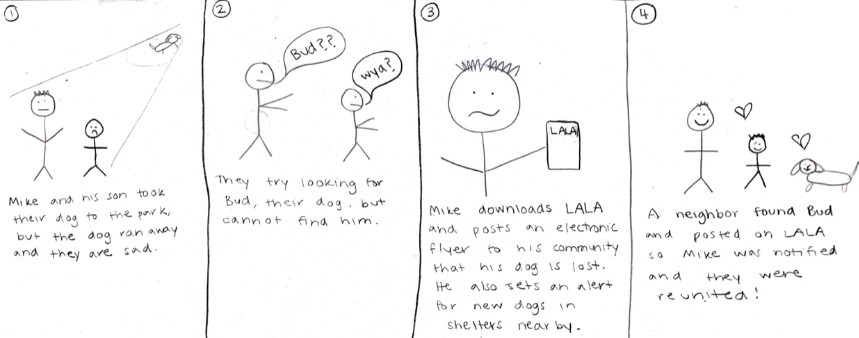 1
Mike and his son took
their dog to the park,
but the dog ran away
and they are sad.
2
Bud??
wya?
They try looking for
Bud, their dog. but
cannot find him.
3
LALA
Mike downloads LALA
and posts an electronic
flyer to his community
that his dog is lost.
He also sets an alert
for new dogs in
shelters nearby.
4
A neighbor found Bud
and posted on LALA
so Mike was notified
and they were
reunited!